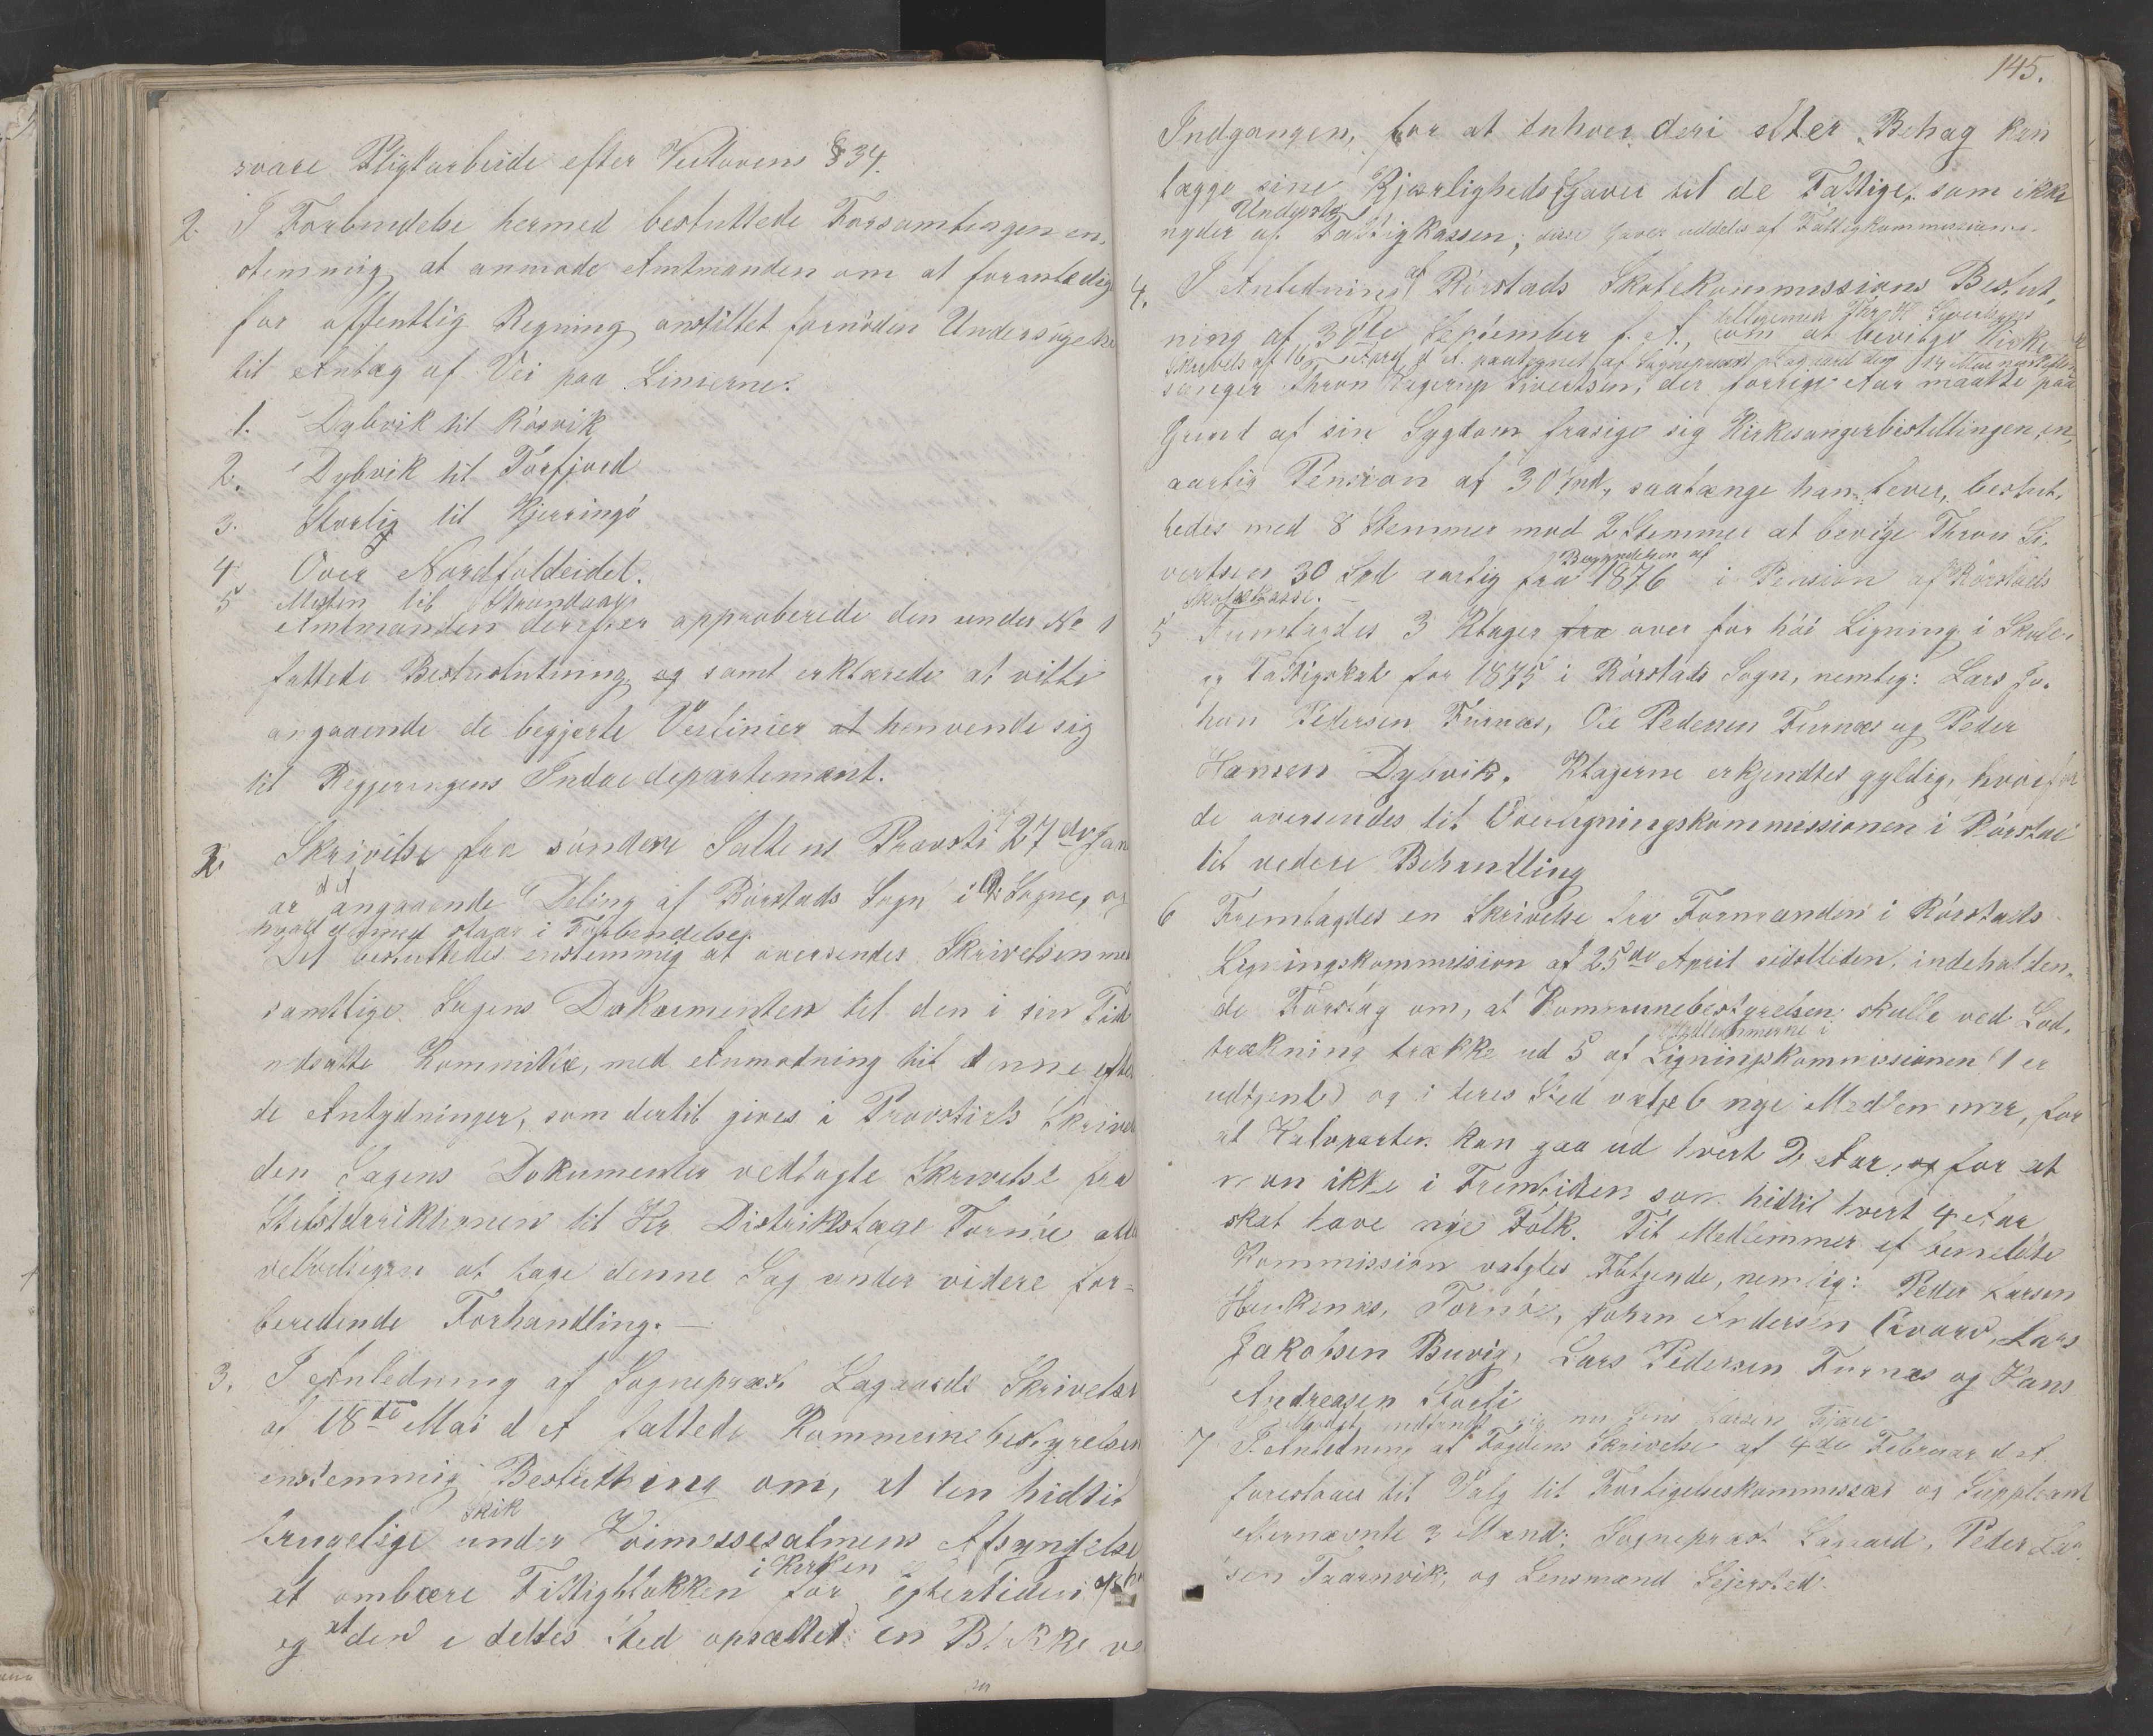 svare Pligtarbeide efter Veilovens § 34.
2. I Forbindelse hermed besluttede Forsamlingen en,
stemmig at anmode Amtmanden om at foranledig
for offentlig Regning anstillet fornöden Undersøgelse
til Anlæg af Vei paa Linierne:
1. Dybvik til Rösvik
2. Dybvik til Törfjord
3. Storlig til Kjerringö
4 Over Nordfoldeidet.
5 Misten til Strandaag
Amtmanden derefter approberede den under No 1
fattede Beslutning, og samt erklærede at ville
angaaende de begjerte Veilinier at henvende sig
til Regjeringens Indredepartement.
2. Skrivelse fra söndere Saltens Provsti af 27de Jan
ar d A angaaende Deling af Rörstads Sogn i 2 Sogne, og
hvad dermed staar i Forbindelse.
Det besluttedes enstemmig at oversendes Skrivelsen med
samtlige Sagens Dokumenter til den i sin Tid
nedsatte Kommitte, med Anmodning til denne efter
de Antydninger, som dertil gives i Provstiets Skrivel
den Sagens Dokumenter vedlagte Skrivelse fra
Stiftsdirektionen til Hr. Distriktslæge Tornöe at
velvilligen at tage denne Sag under videre for=
beredende Forhandling. —
3. I Anledning af Sognepræst Lagaards Skrivelse
af 18de Mai d A fattede Kommunebestyrelsen
enstemmig Beslutning om, at den hidtil
brugelige Skik under Höimessesalmens Afsyngelse
at ombære Fattigblokken i Kirken for Eftertiden
og at der i dettes Sted opsættes en Blokke ve
145.
Indgangen, for at Enhver deri efter Behag kan
lægge sine Kjærligheds Gaver til de Fattige, som ikke
nyder Underst. af Fattigkassen; disse Gaver uddeles af Fattigkommissionen.
4. I Anledning af Rörstads Skolekommissions Beslut,
ning af 30te September f. A., om at bevilge Kirke
Skrivelse af 16 Marts d A. paategnet af Sognepræst Lagaard
sanger Thron Hagerup Sivertsen, der forrige Aar maatte paa
Grund af sin Sygdom frasige sig Kirkesangerbestillingen, en
aarlig Pension af 30 Spd, saalænge han lever, beslut,
tedes med 8 Stemmer mod 2 Stemmer at bevilge Thron Si,
vertsen 30 Spd aarlig fra Begyndelsen af 1876 i Pension af Rörstads
Skolekasse. —
5 Fremlagdes 3 Klager fra over for höi Ligning i Skole,
og Fattigskat for 1875 i Rörstads Sogn, nemlig: Lars Jo,
han Pedersen Furnæs, Ole Pedersen Furnæs og Peder
Hansen Dybvik. Klagerne erkjendtes gyldig, hvorfor
de oversendes til Overligningskommissionen i Rörstad
til videre Behandling
6 Fremlagdes en Skrivelse fra Formanden i Rörstads
Ligningskommission af 25de April sidstleden, indeholden,
de Forslag om, at Kommunebestyrelsen skulle ved Lod,
trækning trække ud 5 af Medlemmerne i Ligningskommissionen (1 er
udgaaet) og i deres Sted vælge 6 nye Medlemmer, for
at Halvparten kan gaa ud hvert 2det Aar, og for at
man ikke i Fremtiden som hidtil hvert 4 Aar
skal have nye Folk. Til Medlemmer af bemeldte
Kommission valgtes Følgende, nemlig: Peder Larsen
Haukenæs, Tornöe, Johan Andersen Qvarv, Lars
Jakobsen Buvig, Lars Pedersen Furnæs og Hans
Andreasen Storli
I Mödet indfandt sig nu Jens Larsen
7 I Anledning af Fogdens Skrivelse af 4de Februar d A.
forestaaes til Valg til Forligelseskommissær og Suppleant
efternævnte 3 Mænd: Sognepræst Lagaard, Peder Lar,
sen Taarnvik, og Lensmand Sejersted.